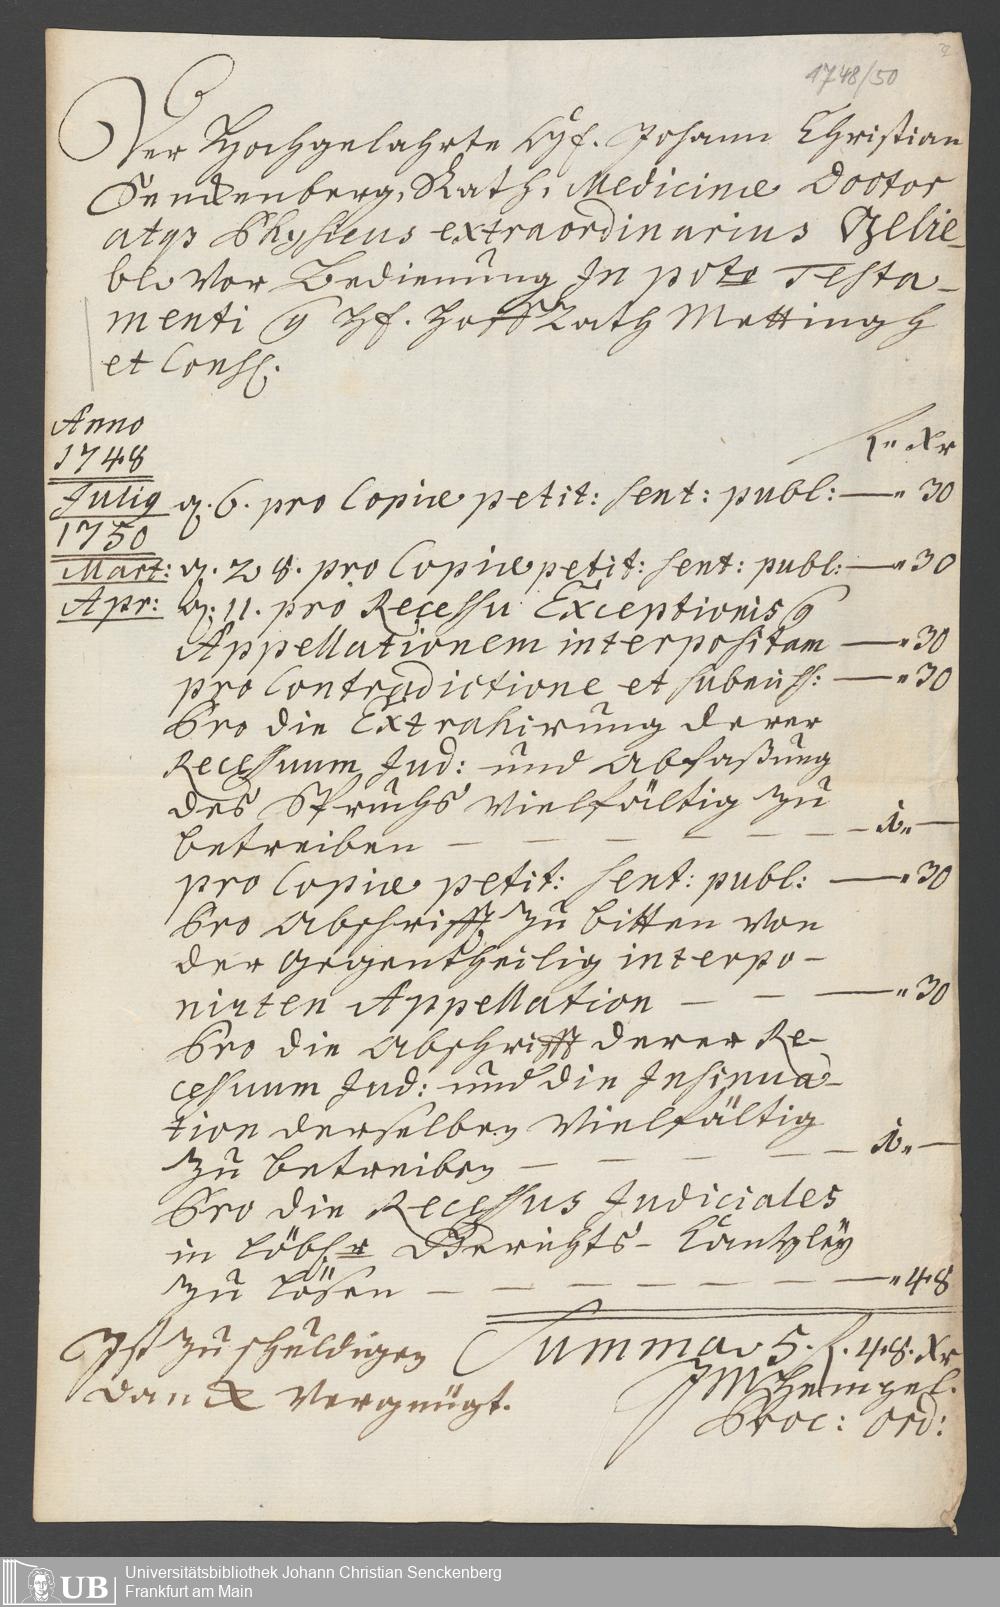 1748/50
Der Hochgelahrte Hh. Johann Christian
Senckenberg, Rath, Medicinæ Doctor
atqз Physicus extraordinarius Gelie-
be vor Bedienung In pcto Testa-
menti Hh. Hoff Rath Mettingh
et Cons.
Anno
1748
f.. Xr
Julig d. 6. pro Copiæ petit: sent: publ: — " 30
1750
Mart: d. 28. pro Copiæ petit: sent: publ: — " 30
Apr: d. 11. pro Recessu Exceptionis
Appellationem interpositam — " 30
pro Contradictione et submiss: — " 30
Pro die Extrahirung derer
Recessuum Jud: und Abfaßung
des Spruchs vielfältig zu
betreiben — — — — — — — 1. " —
pro Copiæ petit: sent: publ: — " 30
Pro Abschrifft zu bitten von
der gegentheilig interpo-
nirten Appellation — — — " 30
Pro die Abschrifft derer Re-
cessuum Jud: und die Insinua-
tion derselben vielfältig
zu betreiben — — — — — 1. " —
Pro die Recessus Judiciales
in Löbl.r Gerichts- Cantzley
zu lösen — — — — — — " 48
Summa 5. f. 48. Xr
Ist zu schuldigen
danck vergnügt.
JMHempel.
Proc: ord:
UB
Universitätsbibliothek Johann Christian Senckenberg
Frankfurt am Main